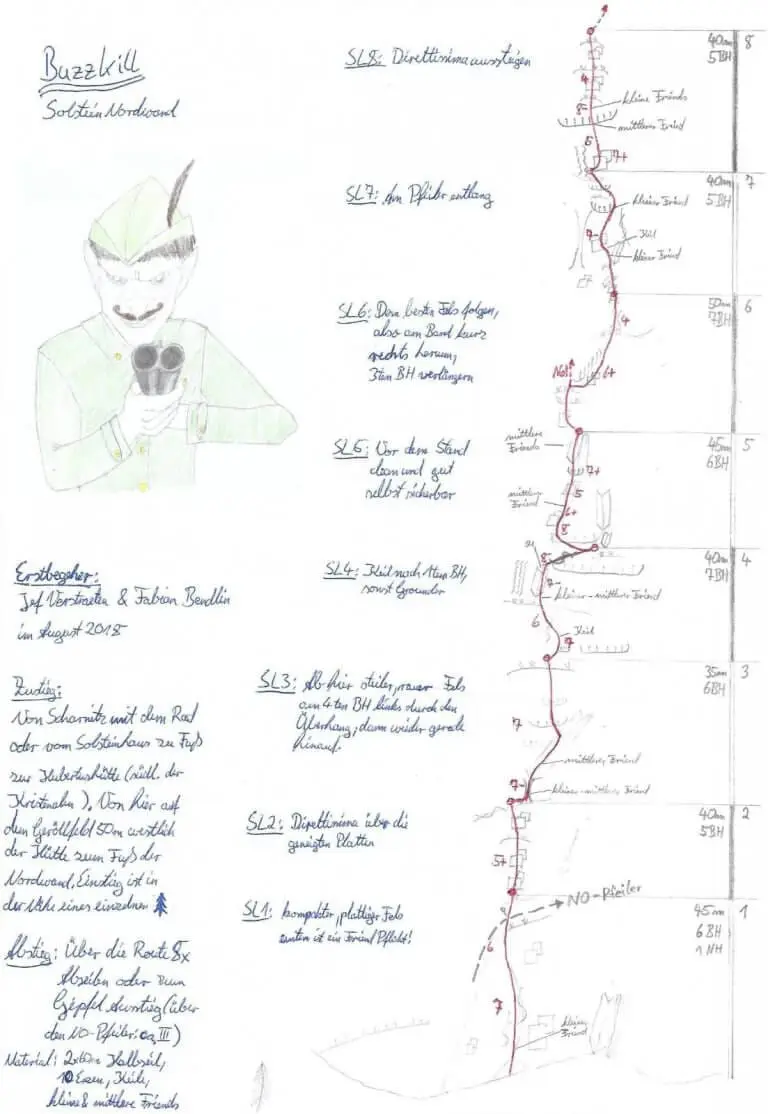 Buzzkill
Solstein Nordwand
Erstbegeher:
Jef Verstraeten & Fabian Bendlin
im August 2018
Zustieg:
Von Scharnitz mit dem Rad
oder vom Solsteinhaus zu Fuß
zur Hubertushütte (südl. der
Kristenalm). Von hier auf
dem Geröllfeld 50m westlich
der Hütte zum Fuß der
Nordwand, Einstieg ist in
der Nähe eines einzelnen
Abstieg: Über die Route 8x
Abseilen oder zum
Gipfel Ausstieg (über
den NO-Pfeiler: ca. III)
Material: 2x60m Halbseil,
10 Exen, Keile,
kleine & mittlere Friends
SL8: Direttissima aussteigen
SL7: Am Pfeiler entlang
SL6: Dem besten Fels folgen,
also am Band kurz
rechts herum,
3ten BH verlängern
SL5: Vor dem Stand
clean und gut
selbst sicherbar
SL4: Keil nach 1tem BH,
sonst Grounder
SL3: Ab hier steiler, rauer Fels
am 4ten BH links durch den
Überhang, dann wieder gerade
hinauf.
SL2: Direttissima über die
geneigten Platten
SL1: kompakter, plattiger Fels
unten ist ein Friend Pflicht!
40m 8
5BH
4
kleine Friends
8-
mittlerer Friend
5
7+
40m 7
5BH
kleiner Friend
Keil
7-
kleiner Friend
50m 6
7BH
4
No!
6+
45m 5
6BH
mittlere
Friends
7+
5
mittlerer
Friend
6+
8
40m 4
7BH
8-
7-
kleiner-mittlerer Friend
6
Keil
7
35m 3
6BH
7
mittlerer Friend
7-
kleiner-mittlerer Friend
40m 2
5BH
5+
NO-Pfeiler
45m 1
6BH
1NH
3
6
7
kleiner
Friend